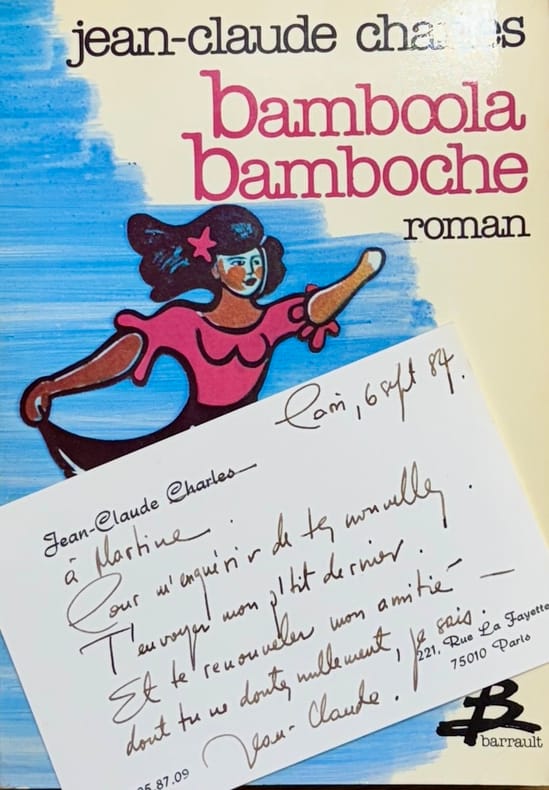 jean-claude charles
bamboola
bamboche
roman
Paris, 6 sept 84.
Jean-Claude Charles
à Martine.
Pour m'enquérir de tes nouvelles.
T'envoyer mon p'tit dernier.
Et te renouveler mon amitié —
dont tu ne doutes nullement, je sais.
Jean-Claude.
221, Rue La Fayette
75010 Paris
05.87.09
B
barrault